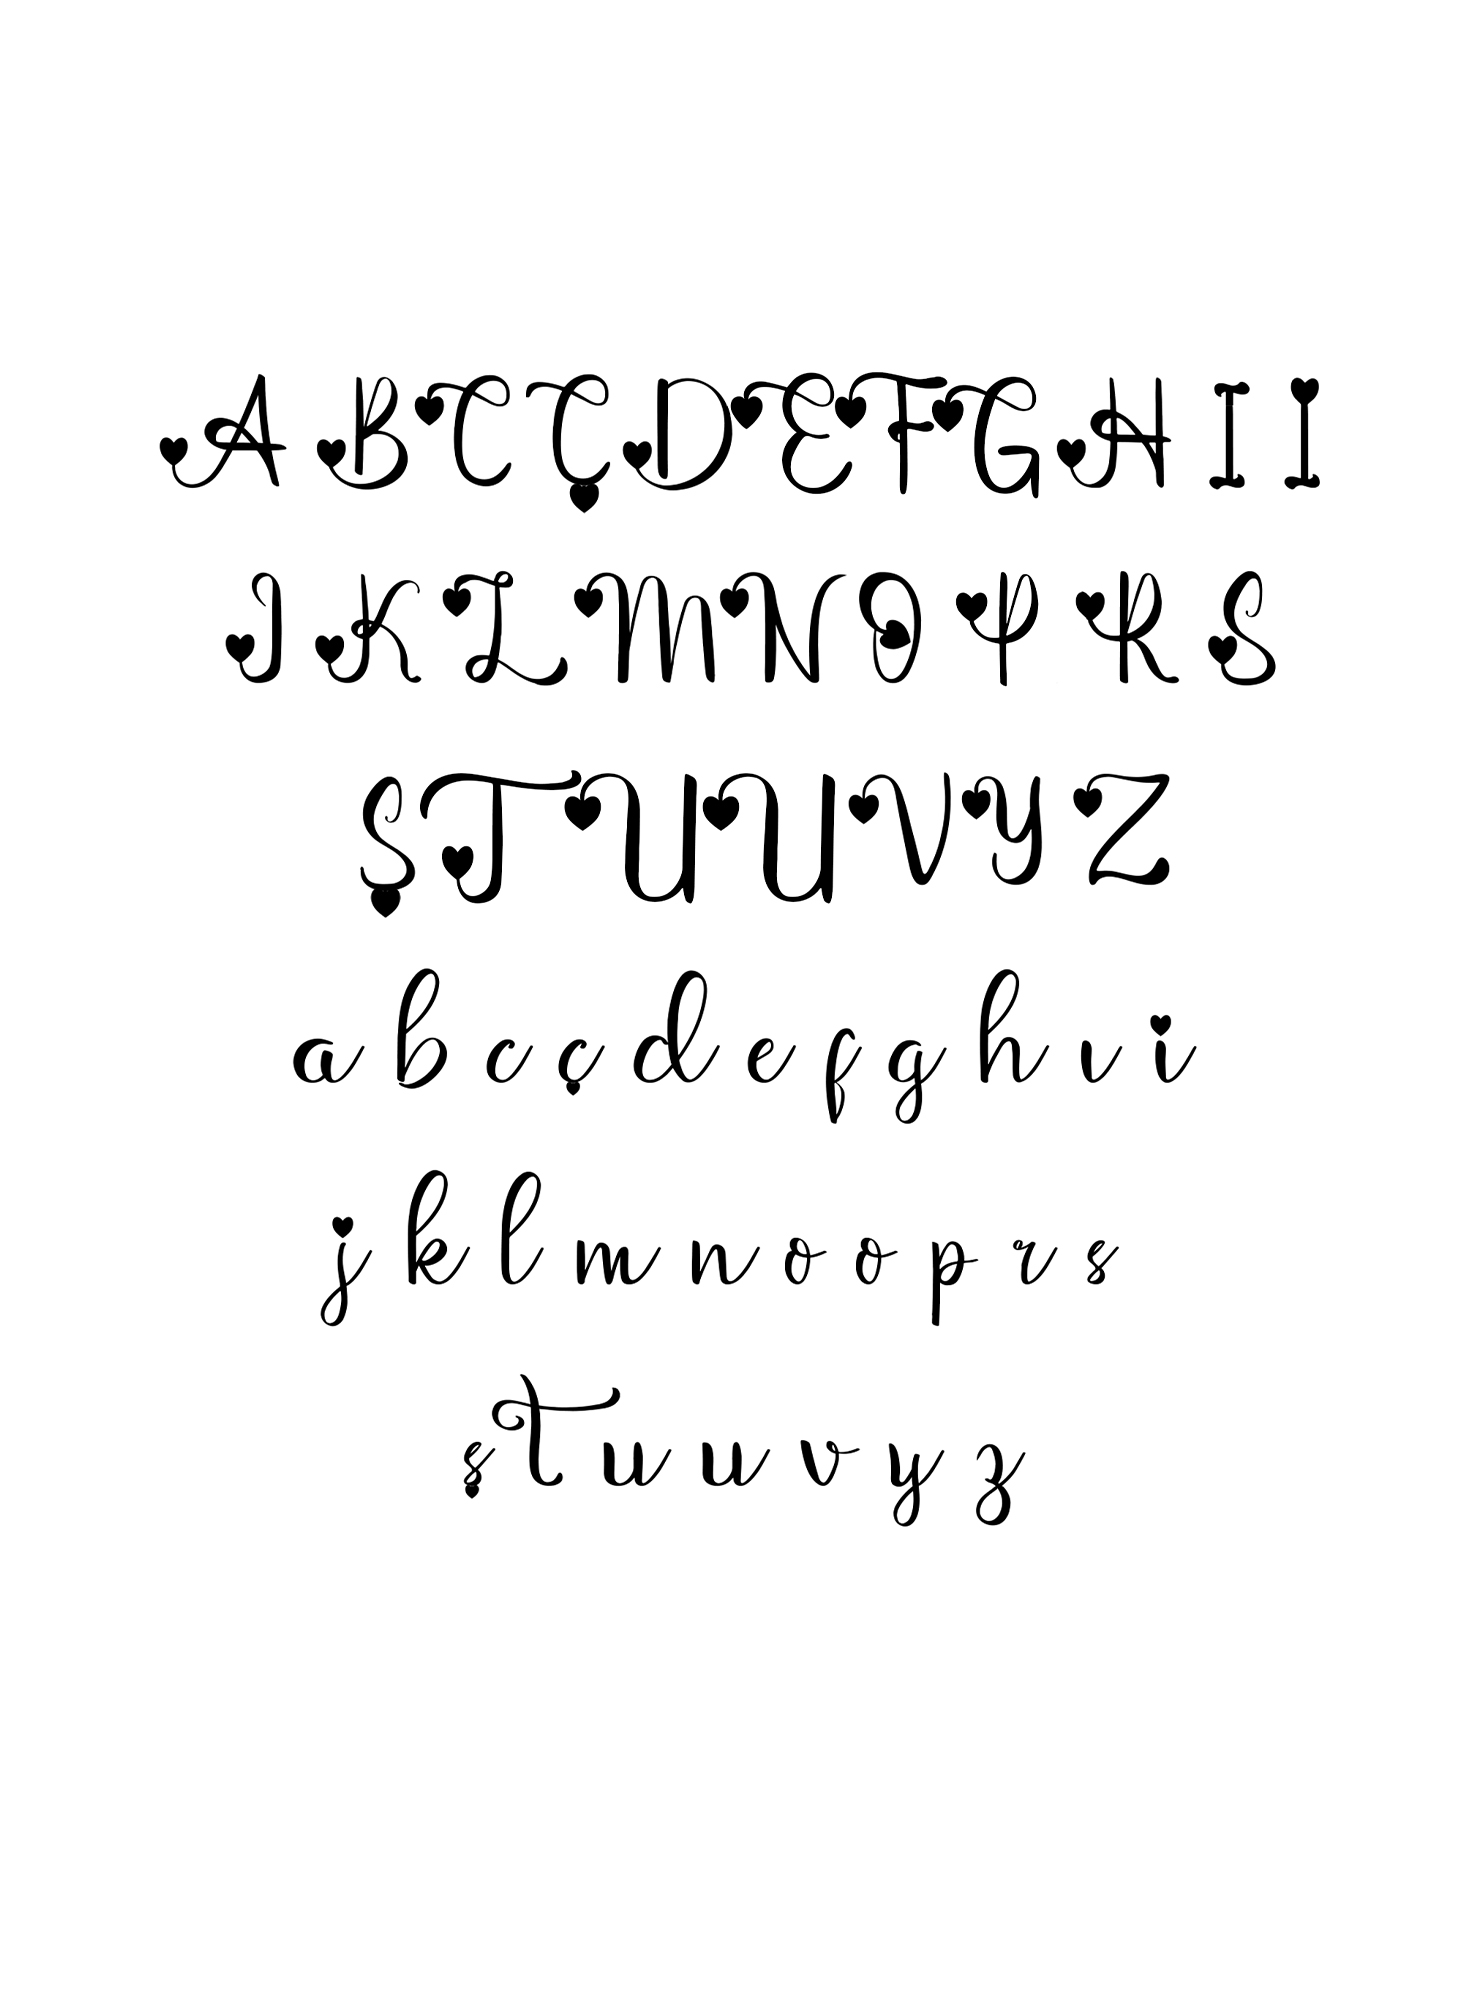 A B C Ç D E F G H I İ
J K L M N O P R S
Ş T U U V Y Z
a b c ç d e f g h ı i
j k l m n o o p r s
ş t u u v y z